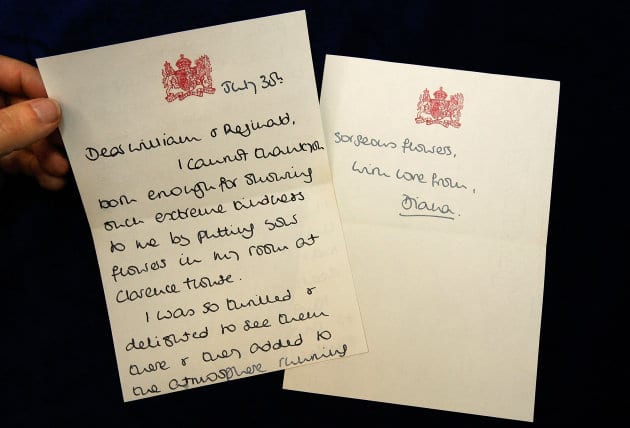 July 30th
Dear William & Reginald,
I cannot thank you
both enough for showing
such extreme kindness
to me by putting your
flowers in my room at
Clarence House.
I was so thrilled &
delighted to see them
there & they added to
the atmosphere running
gorgeous flowers,
With love from,
Diana.